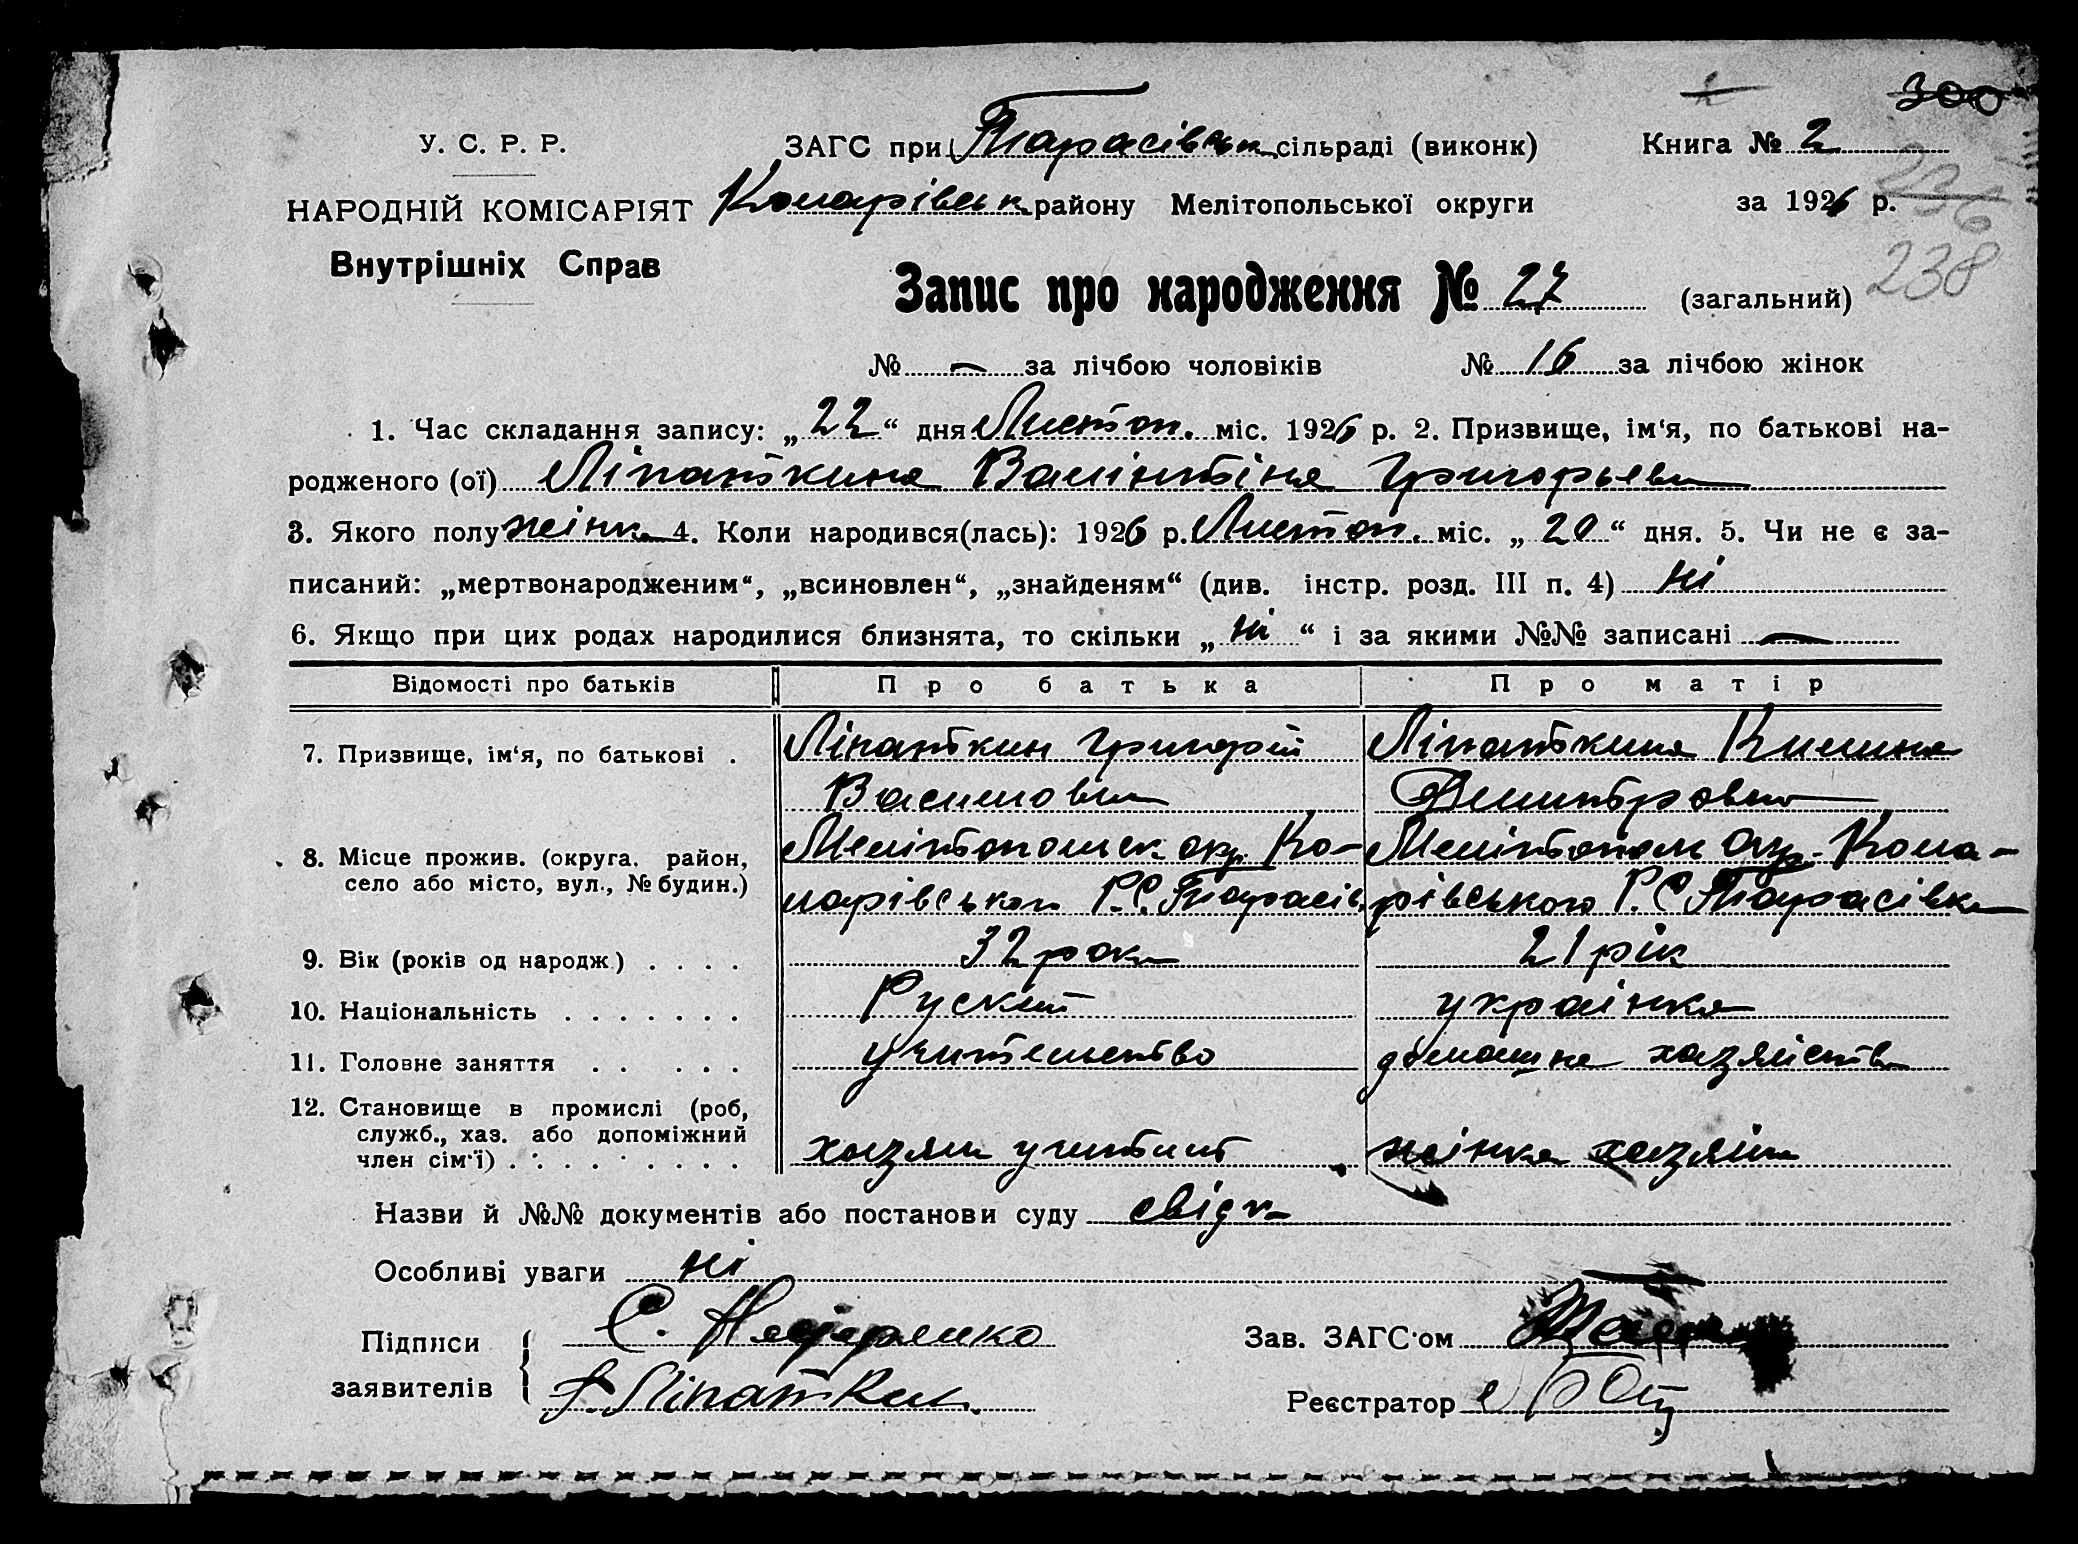 300
У. С. Р. Р. ЗАГС при Тарасівськ сільраді (виконк) Книга № 2
236
НАРОДНІЙ КОМІСАРІЯТ Комарівськ району Мелітопольської округи за 1926 р.
Внутрішніх Справ
238
Запис про народження № 27 (загальний)
№ — за лічбою чоловіків № 16 за лічбою жінок
1. Час складання запису: „22“ дня Листоп. міс. 1926 р. 2. Призвище, ім‘я, по батькові на-
родженого (ої) Ліпаткина Валінтіна Григорьевн
3. Якого полу жінк. 4. Коли народився(лась): 1926 р. Листоп. міс. „20“ дня. 5. Чи не є за-
писаний: „мертвонародженим“, „всиновлен“, „знайденям“ (див. інстр. розд. III п. 4) ні
6. Якщо при цих родах народилися близнята, то скільки „ні“ і за якими №№ записані —
Відомості про батьків Про батька Про матір
7. Призвище, ім‘я, по батькові . Ліпаткин Григорій Ліпаткина
Василович Дмитровна
8. Місце прожив. (округа, район, Мелітопольск окр. Ко- Мелітополь Окр. Кома-
село або місто, вул., № будин.) марівськог Р. С. Тарасів. рівського Р. С Тарасівка
9. Вік (років од народж.) . . . . 32 роки 21 рік
10. Національність . . . . . . . Руский українка
11. Головне заняття . . . . . учительство домашне хазяйство
12. Становище в промислі (роб,
служб., хаз. або допоміжний
член сім‘ї) . . . . . . . . . хазяин учитиль жінка хазяїна
Назви й №№ документів або постанови суду свідк
Особливі уваги ні
Підписи С. Зав. ЗАГС‘ом
заявителів Г. Ліпаткин Реєстратор